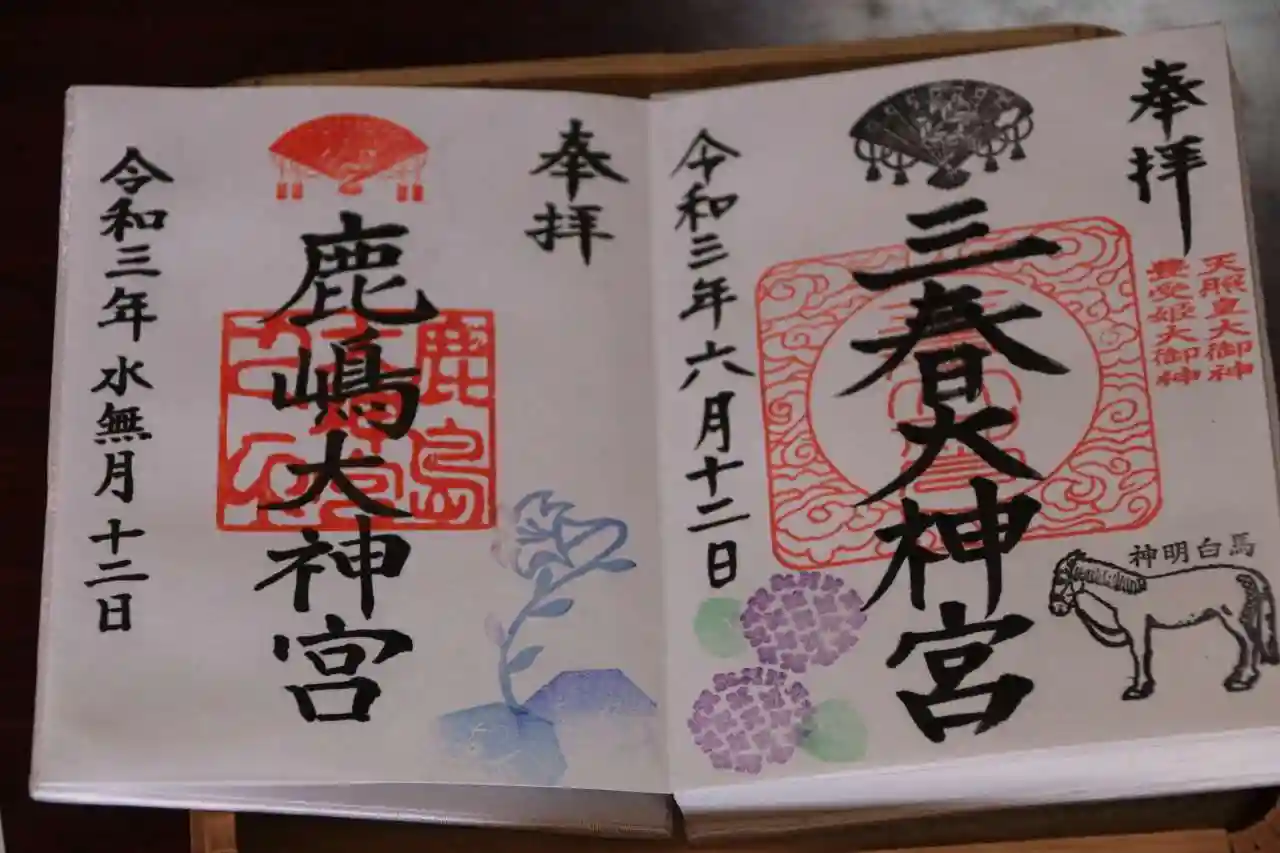 奉拝
天照皇大御神
豊受姫大御神
三春大神宮
神明白馬
令和三年六月十二日
奉拝
鹿嶋大神宮
令和三年水無月十二日